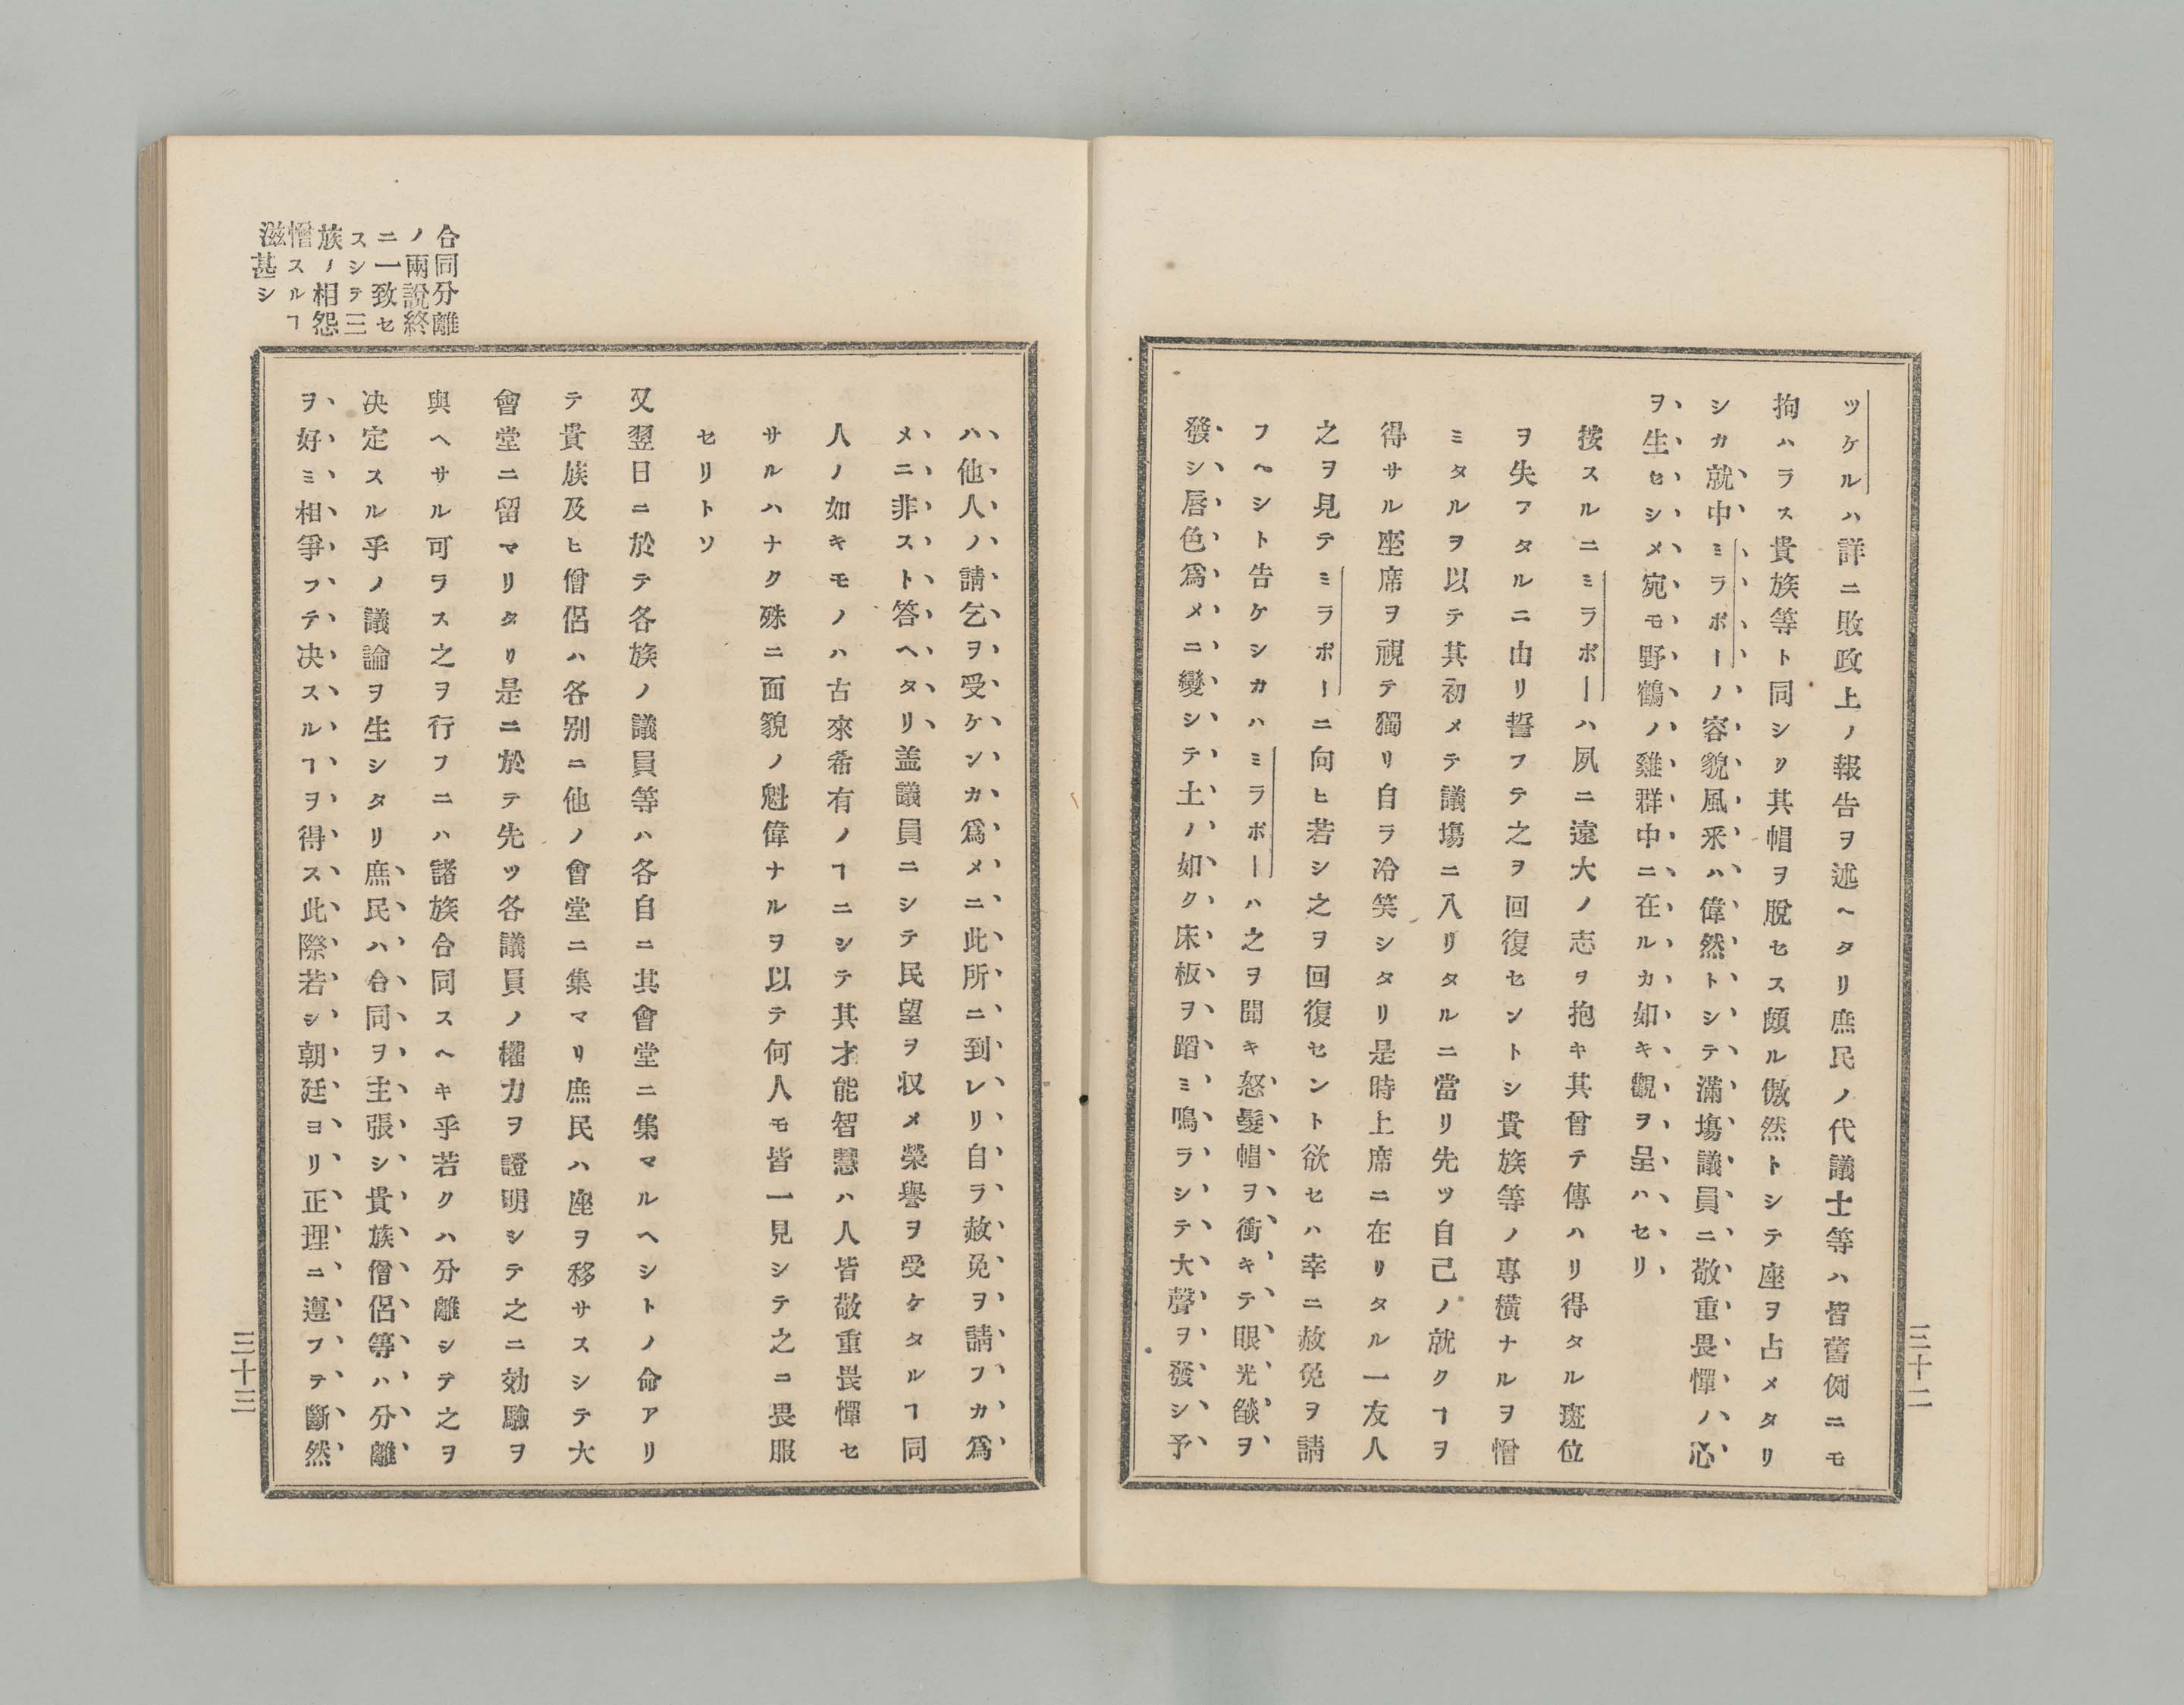 ツケルハ詳ニ敗政上ノ報告ヲ述ヘタリ庶民ノ代議士等ハ皆舊例ニモ
拘ハラス貴族等ト同シク其帽ヲ脫セス頗ル傲然トシテ座ヲ占メタリ
シカ就中ミラボーノ容貌風釆ハ偉然トシテ滿塲議員ニ敬重畏憚ノ心
ヲ生セシメ宛モ野鶴ノ雞群中ニ在ルカ如キ觀ヲ呈ハセリ
按スルニミラボーハ夙ニ遠大ノ志ヲ抱キ其曾テ傳ハリ得タル班位
ヲ失フタルニ由リ誓フテ之ヲ回復セントシ貴族等ノ專橫ナルヲ憎
ミタルヲ以テ其初メテ議塲ニ入リタルニ當リ先ツ自己ノ就クヿヲ
得サル座席ヲ視テ獨リ自ラ冷笑シタリ是時上席ニ在リタル一友人
之ヲ見テミラボーニ向ヒ若シ之ヲ回復セント欲セハ幸ニ赦免ヲ請
フヘシト告ケシカハミラボーハ之ヲ聞キ怒髮帽ヲ衝キテ眼光燄ヲ
發シ唇色爲メニ變シテ土ノ如ク床板ヲ蹈ミ鳴ラシテ大聲ヲ發シ予
三十二
ハ他人ノ請乞ヲ受ケンカ爲メニ此所ニ到レリ自ラ赦免ヲ請フカ爲
メニ非スト答ヘタリ盖議員ニシテ民望ヲ収メ榮譽ヲ受ケタルヿ同
人ノ如キモノハ古來希有ノヿニシテ其才能智慧ハ人皆敬重畏憚セ
サルハナク殊ニ面貌ノ魁偉ナルヲ以テ何人モ皆一見シテ之ニ畏服
セリトソ
又翌日ニ於テ各族ノ議員等ハ各自ニ其會堂ニ集マルヘシトノ命アリ
テ貴族及ヒ僧侶ハ各別ニ他ノ會堂ニ集マリ庶民ハ座ヲ移サスシテ大
會堂ニ留マリタリ是ニ於テ先ツ各議員ノ權力ヲ證明シテ之ニ効驗ヲ
與ヘサル可ラス之ヲ行フニハ諸族合同スヘキ乎若クハ分離シテ之ヲ
决定スル乎ノ議論ヲ生シタリ庶民ハ合同ヲ主張シ貴族僧侶等ハ分離
ヲ好ミ相爭フテ决スルヿヲ得ス此際若シ朝廷ヨリ正理ニ遵フテ斷然
合同分離
ノ兩說終
ニ一致セ
スシテ三
族ノ相怨
憎スルヿ
滋甚シ
三十三